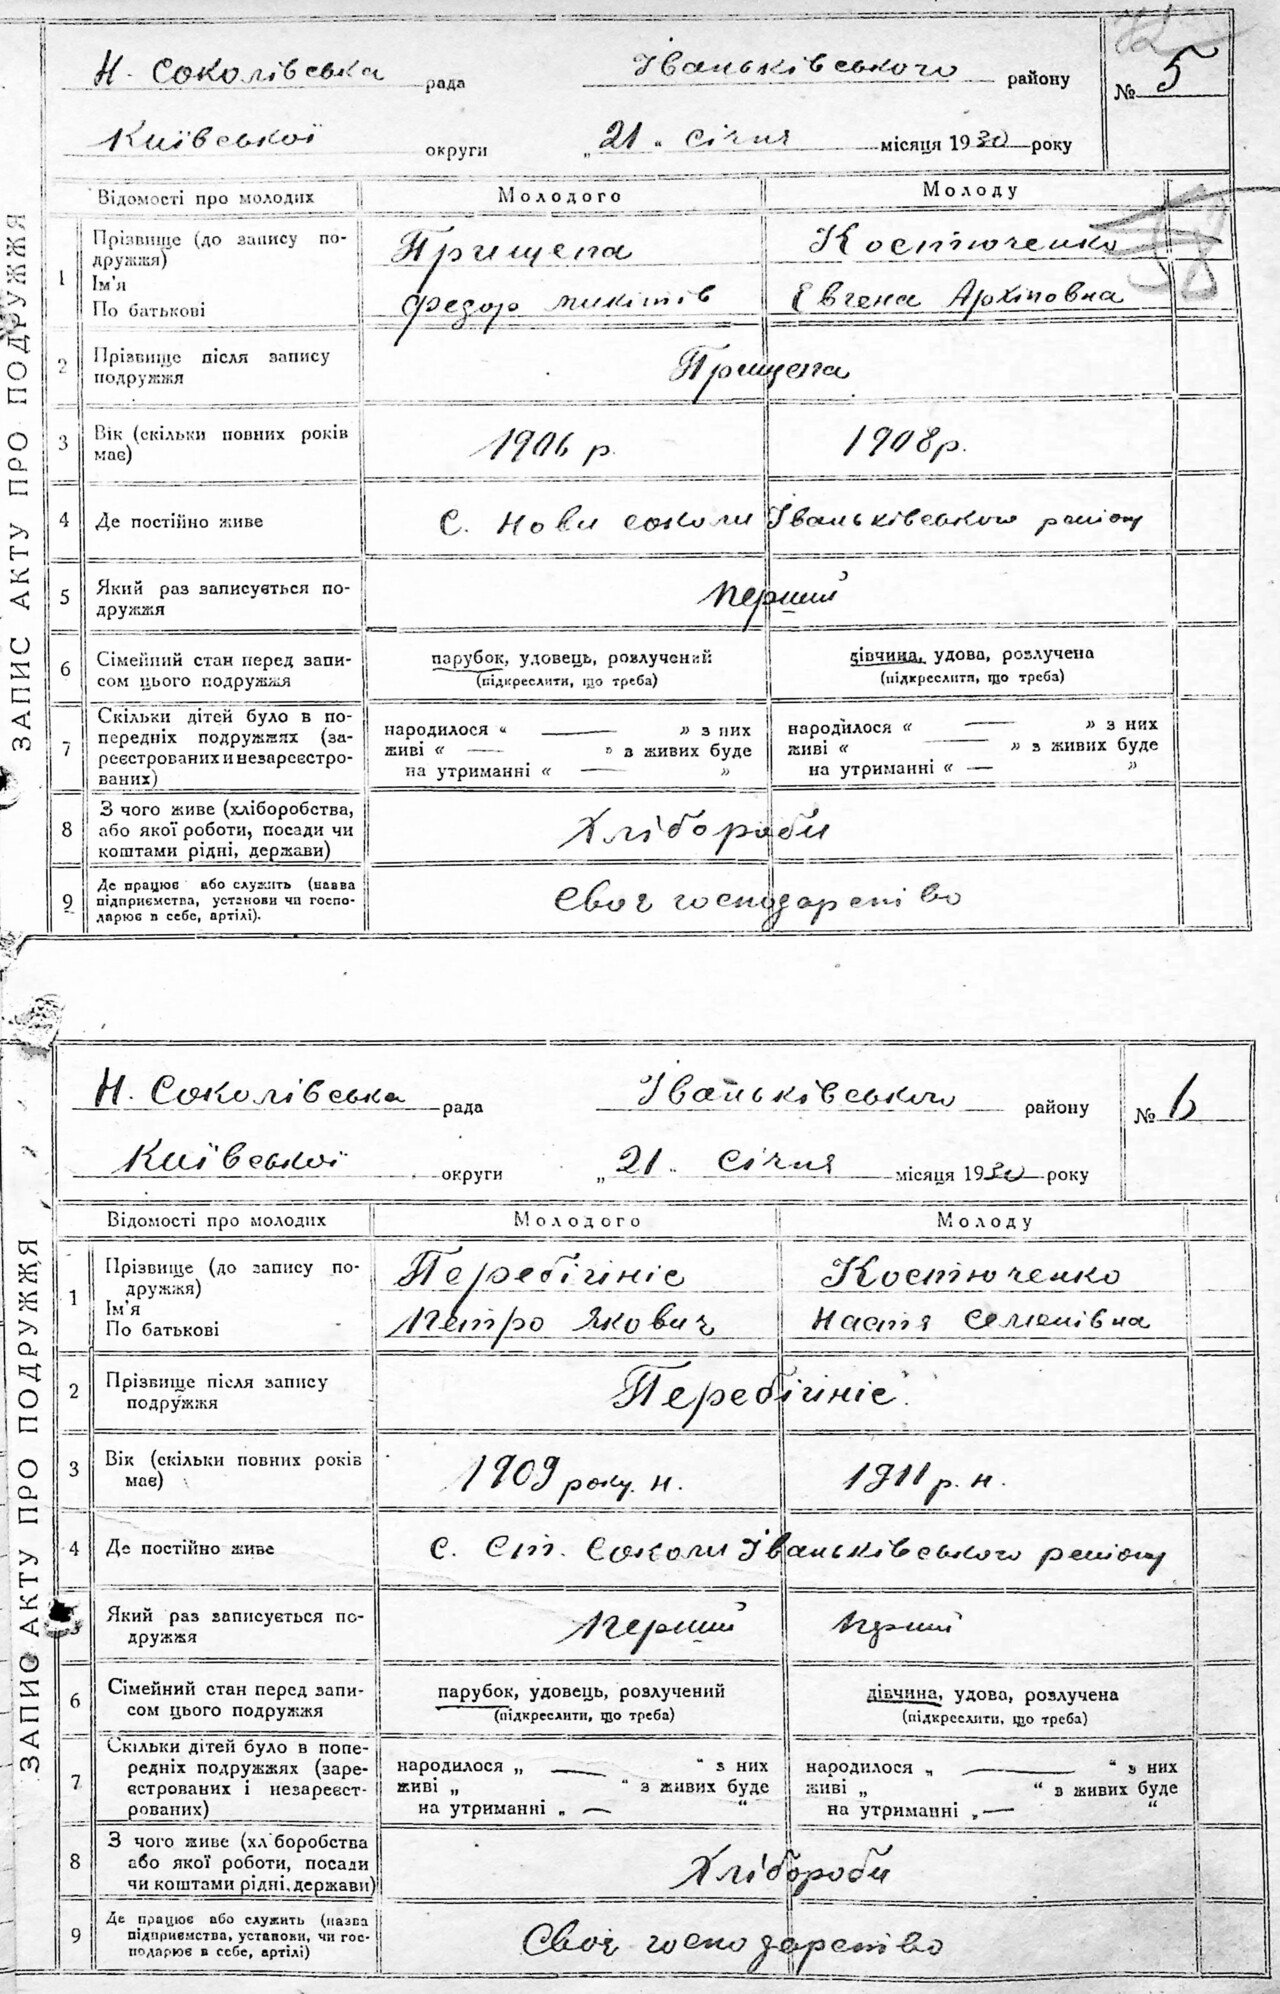 Н. Соколівська рада Іваньківського району № 5
Київської округи „ 21 " січня місяця 1930 року
ЗАПИС АКТУ ПРО ПОДРУЖЖЯ
Відомості про молодих Молодого Молоду
1 Прізвище (до запису по-
дружжя)
Прищепа Костюченко
Ім'я
По батькові
Федор Микитів Євгена Архіповна
2 Прізвище після запису
подружжя
Прищепа
3 Вік (скільки повних років
має)
1906 р. 1908 р.
4 Де постійно живе с. Нови соколи Іваньківського району
5 Який раз записується по-
дружжя
перший
6 Сімейний стан перед запи-
сом цього подружжя
парубок, удовець, розлучений дівчина, удова, розлучена
(підкреслити, що треба) (підкреслити, що треба)
7 Скільки дітей було в по-
передніх подружжях (за-
реєстрованих и незареєстро-
ваних)
народилося « — » з них народилося « — » з них
живі « — » з живих буде живі « — » з живих буде
на утриманні « — » на утриманні « — »
8 З чого живе (хліборобства,
або якої роботи, посади чи
коштами рідні, держави)
Хлібороби
9 Де працює або служить (назва
підприємства, установи чи госпо-
дарює в себе, артілі).
господарство
Н. Соколівська рада Іваньківського району № 6
Київської округи „ 21 " січня місяця 1930 року
ЗАПИС АКТУ ПРО ПОДРУЖЖЯ
Відомості про молодих Молодого Молоду
1 Прізвище (до запису по-
дружжя)
Перебігініс Костюченко
Ім'я
По батькові
Петро Якович Настя Семенівна
2 Прізвище після запису
подружжя
Перебігініс
3 Вік (скільки повних років
має)
1909 року н. 1911 р. н.
4 Де постійно живе с. Ст. Соколи Іваньківського району
Який раз записується по-
дружжя
перший перший
6 Сімейний стан перед запи-
сом цього подружжя
парубок, удовець, розлучений дівчина, удова, розлучена
(підкреслити, що треба) (підкреслити, що треба)
7 Скільки дітей було в попе-
редніх подружжях (заре-
єстрованих і незареєст-
рованих)
народилося „ — " з них народилося „ — " з них
живі „ " з живих буде живі „ " з живих буде
на утриманні „ — " на утриманні „ — "
8 З чого живе (хл боробства
або якої роботи, посади
чи коштами рідні, держави)
Хлібороби
9 Де працює або служить (назва
підприємства, установи, чи гос-
подарює в себе, артілі)
господарство